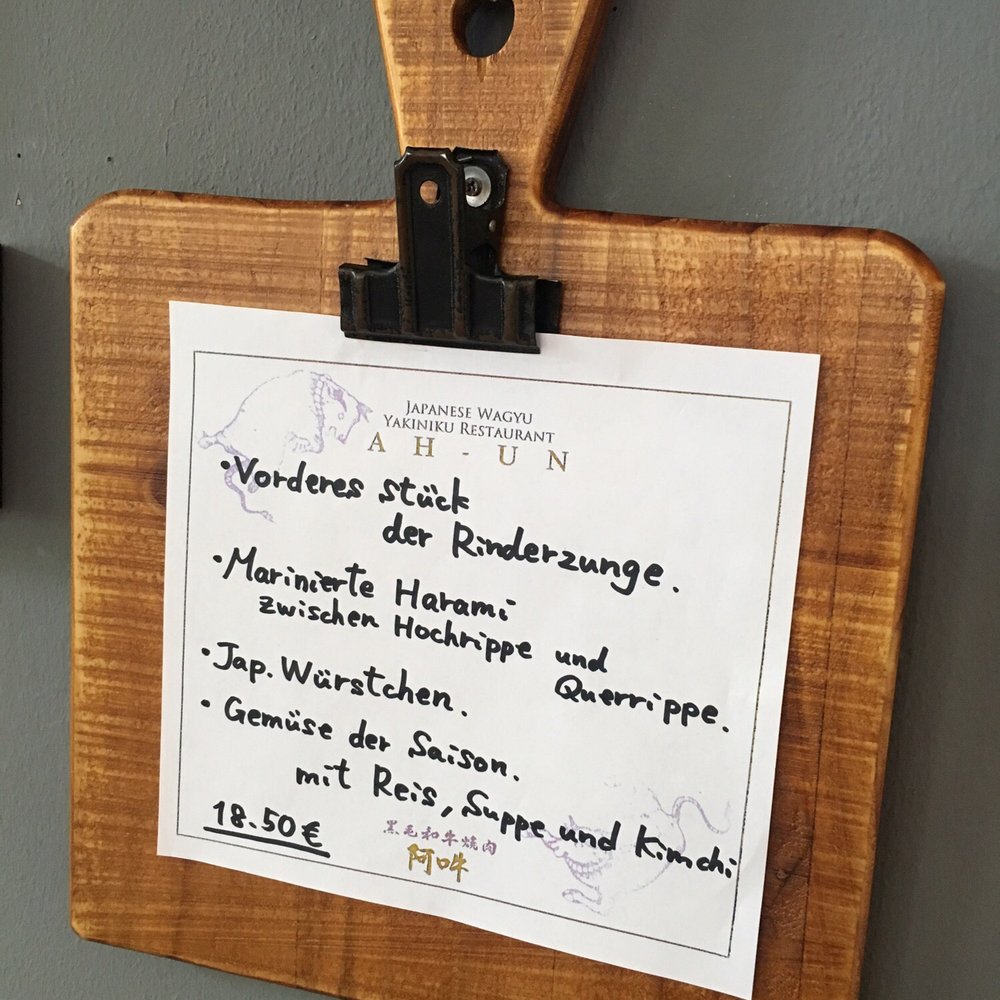 JAPANESE WAGYU
YAKINIKU RESTAURANT
AH-UN
・Vorderes stück
der Rinderzunge.
・Marinierte Harami
zwischen Hochrippe und
Querrippe.
・Jap. Würstchen.
・Gemüse der Saison.
mit Reis, Suppe und Kimchi
18.50€
黒毛和牛焼肉
阿吽